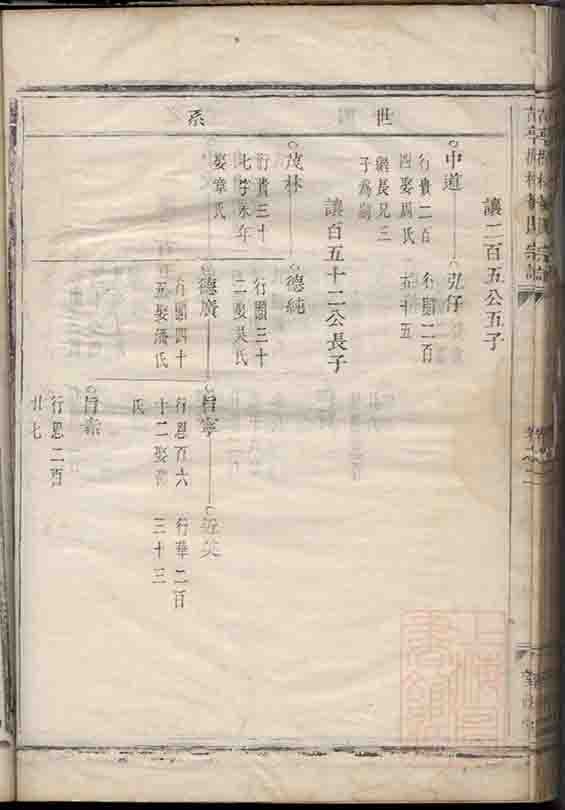 世系
讓二百五公五子
中道
行貴二百
四娶周氏
繼長兄三
子為嗣
弘仔
行開二百
五十五
讓百五十二公長子
茂林
行貴三十
七字永年
娶章氏
德純
行開三十
二娶吳氏
德廣
行開四十
五娶潘氏
旨寧
行恩百六
十二娶
氏
行華二百
三十三
行恩二百
廿七